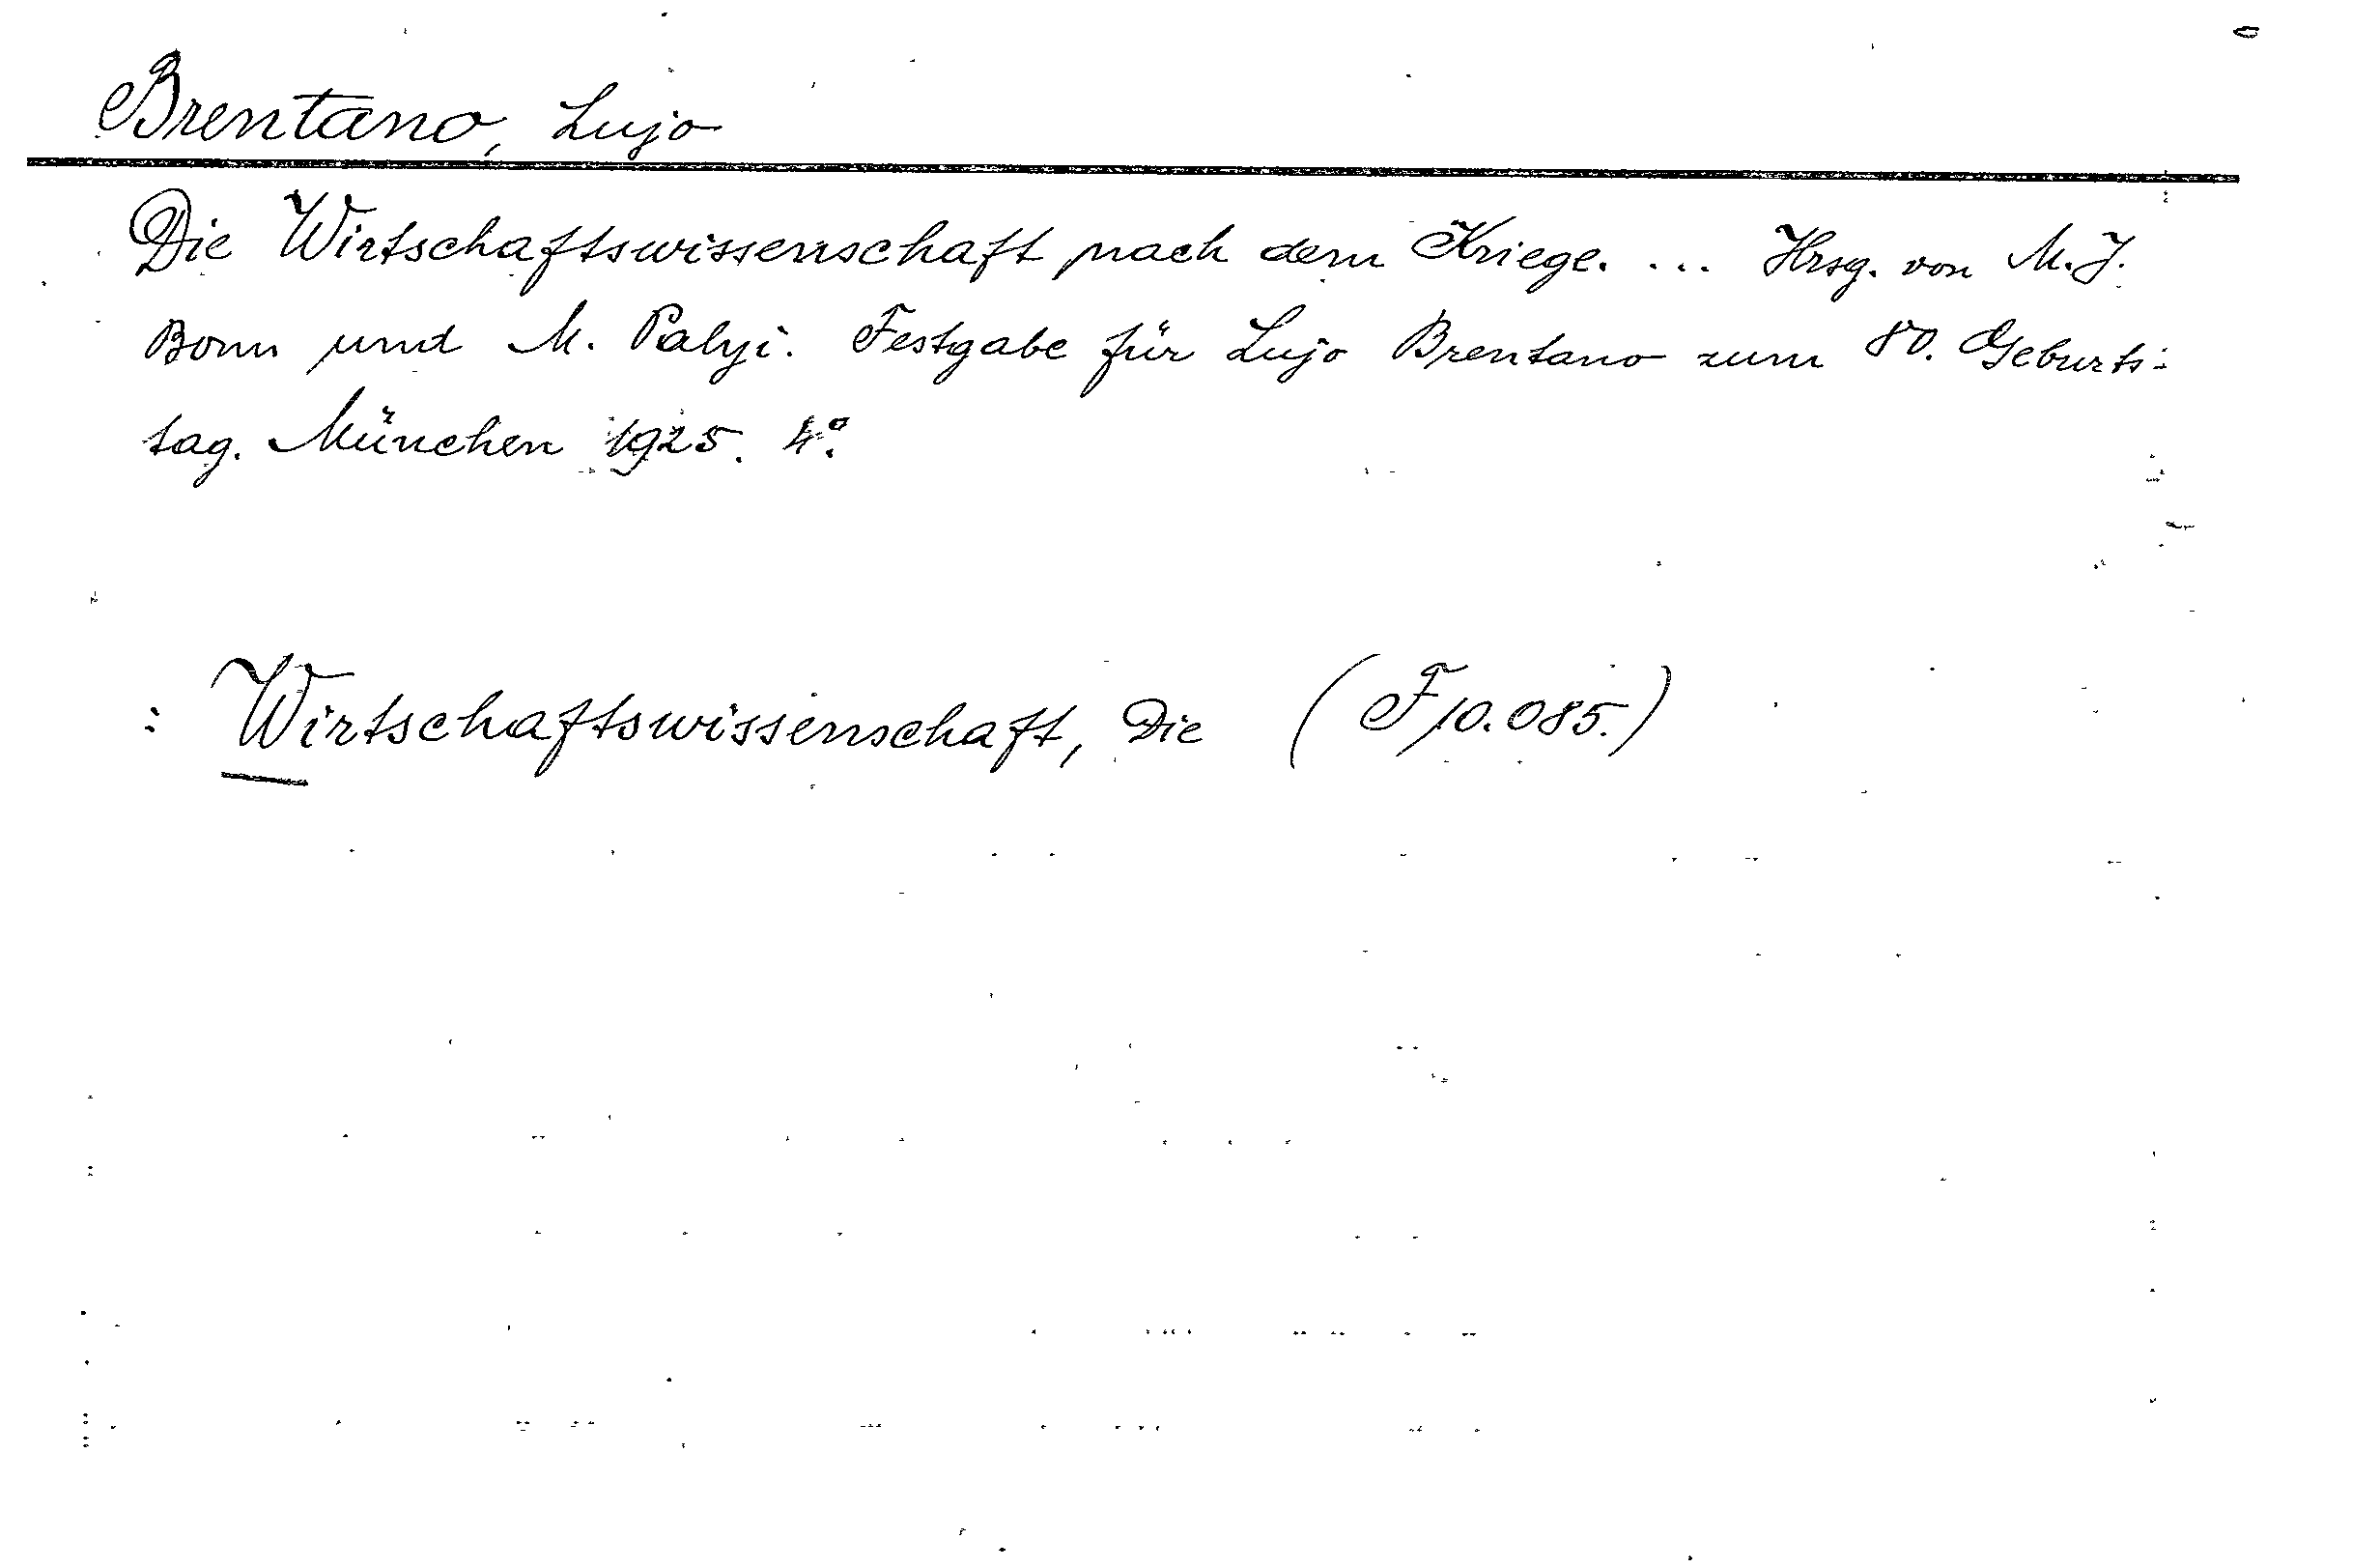 Brentano, Lujo
Die Wirtschaftswissenschaft nach dem Kriege. ... Hrsg. von M. J.
Bonn und M. Palyi. Festgabe für Lujo Brentano zum 80. Geburts-
tag. München 1925. 4°.
: Wirtschaftswissenschaft, Die (F 10.085.)